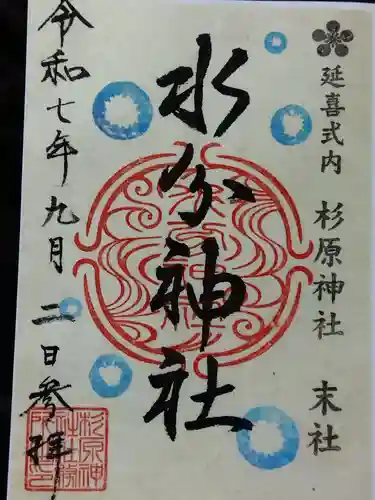 延喜式内 杉原神社 末社
水分神社
令和七年九月二日参拝
杉原神
社社務
所之印